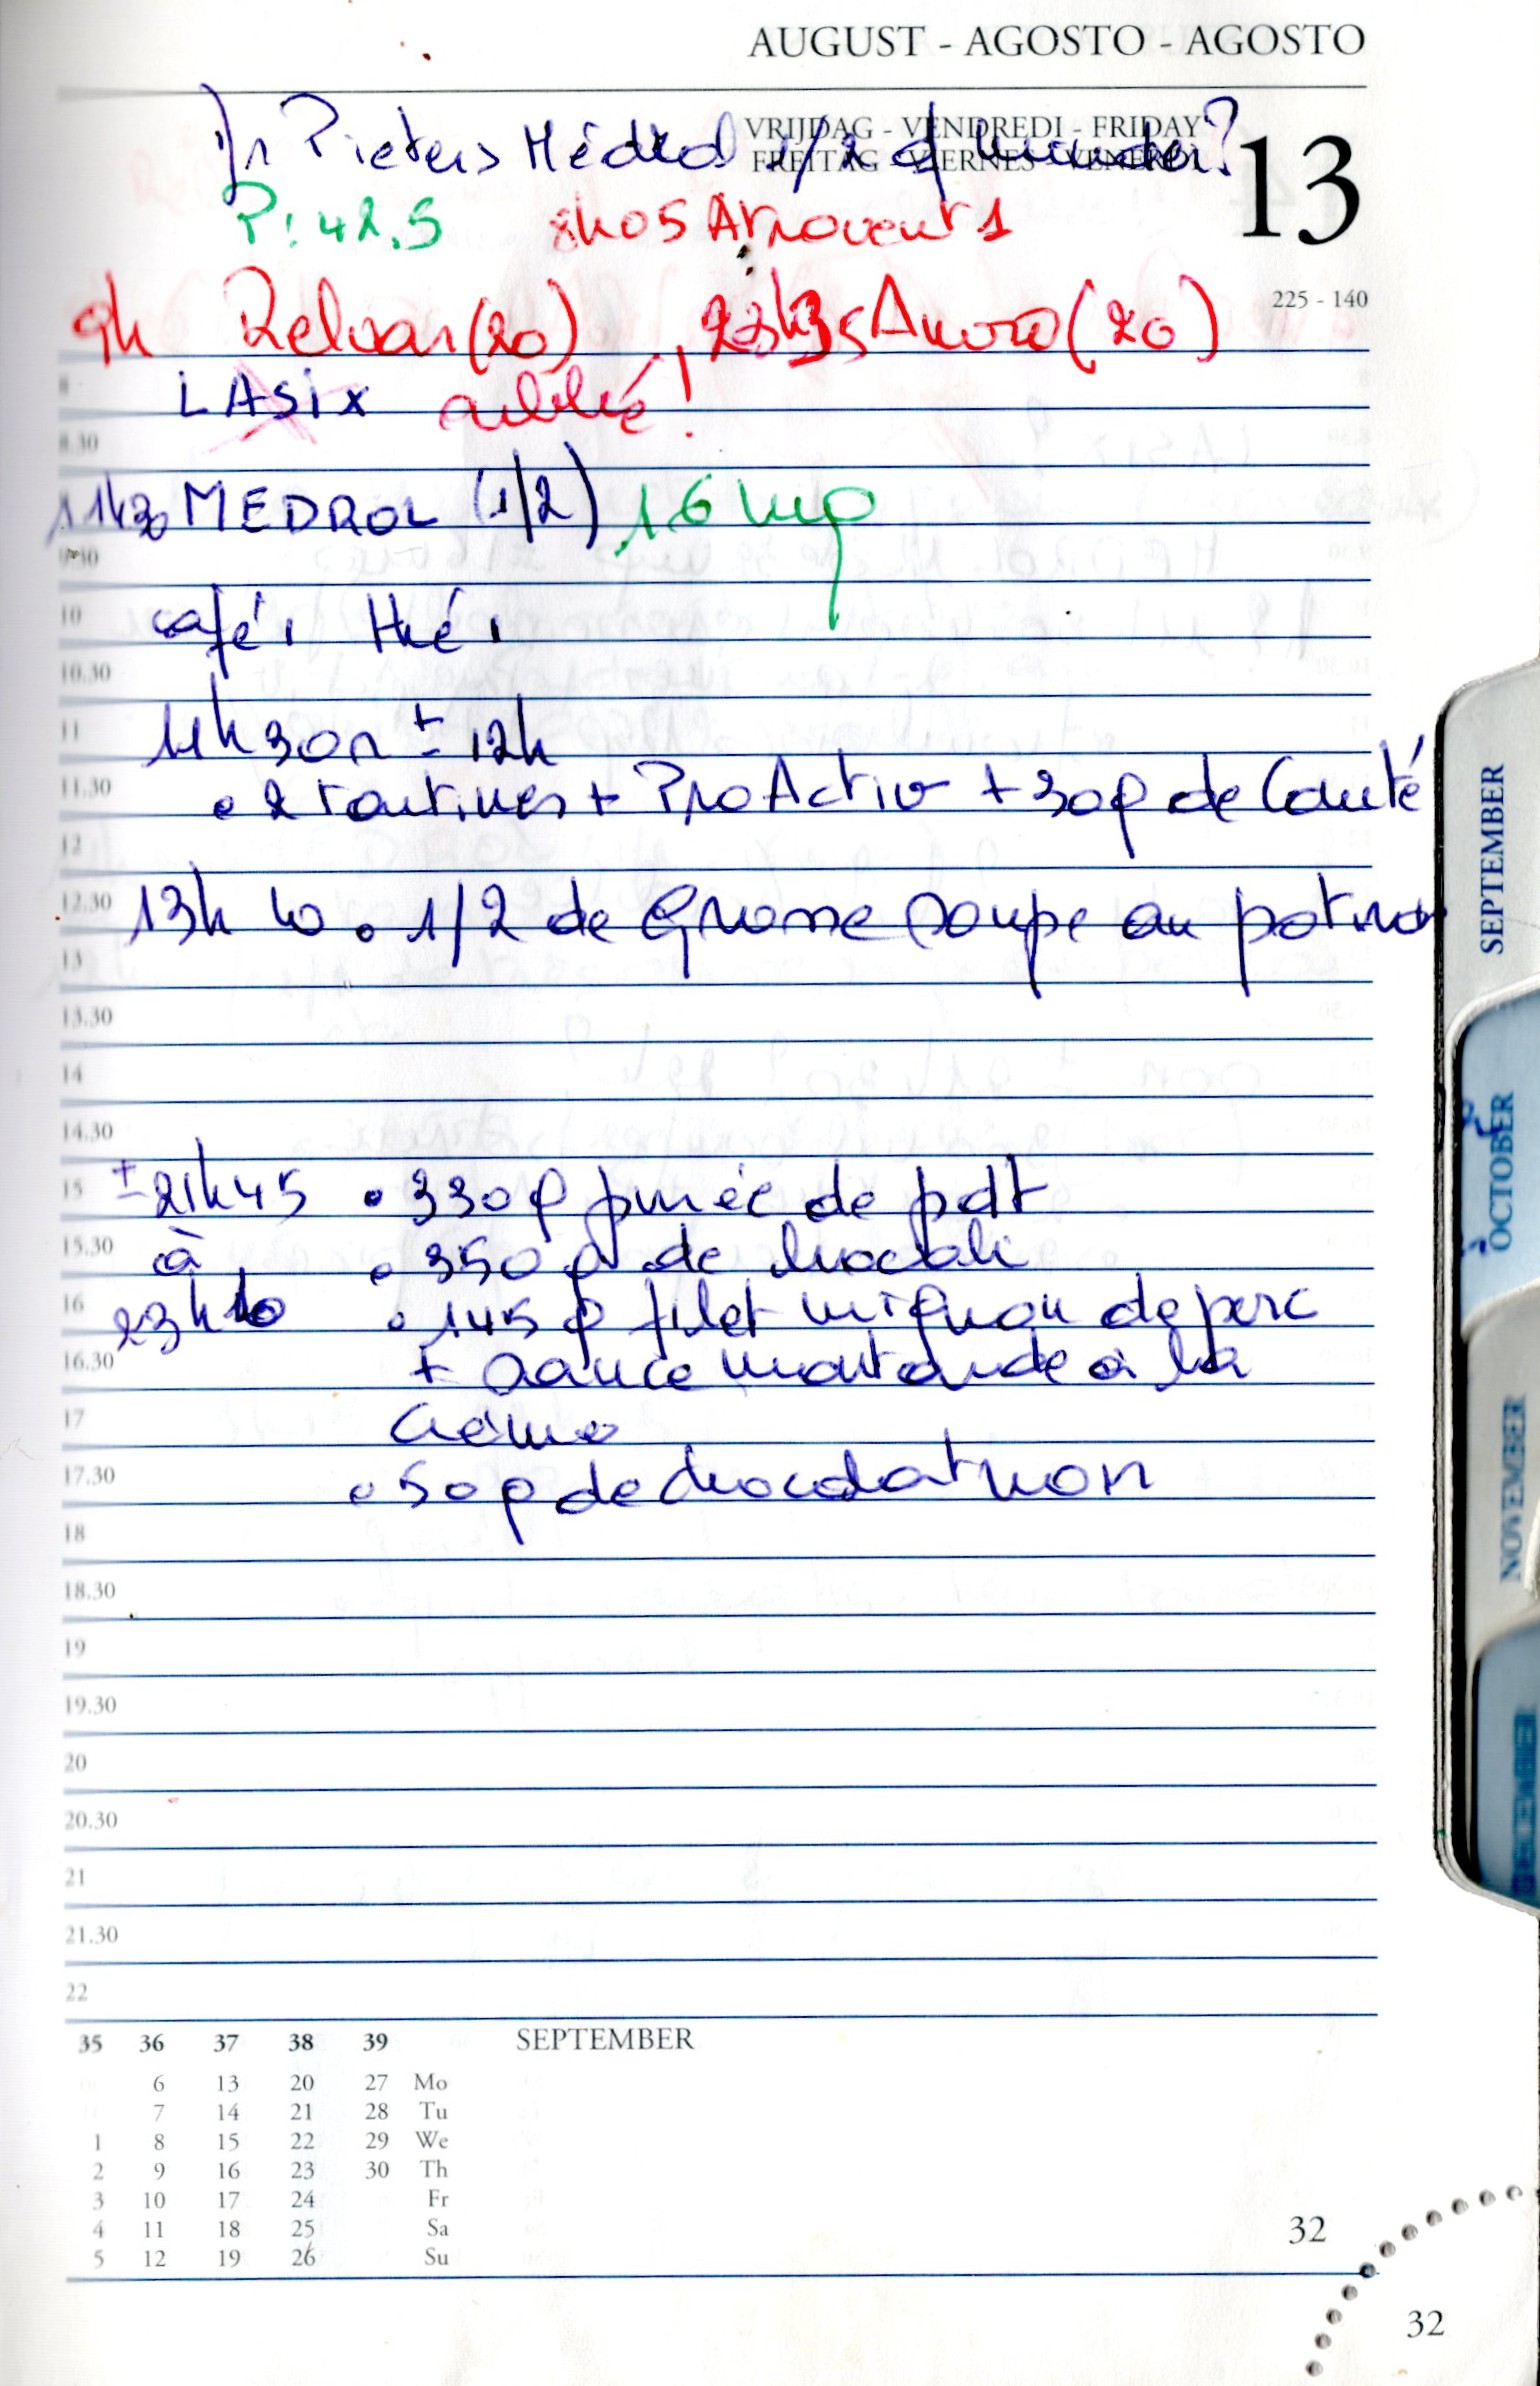 AUGUST - AGOSTO - AGOSTO
VRIJDAG - VENDREDI - FRIDAY
FREITAG - VIERNES - VENERDI
13
Dr Pieters Médrol 1/2 ?
P: 42.5 8h05 Atrovent 1
225 - 140
9h Relvar (20) 23h35 Anoro (20)
8 LASIX oublié!
8.30
11h30 MEDROL (1/2) 16 mg
9.30
10 café 1 thé 1
10.30
11 11h30 ± 12h
11.30 • 2 tartines + ProActiv + 30g de Comté
12
12.30 13h 10 • 1/2 de Grosse soupe au potiron
13
13.30
14
14.30
15 ± 21h45 • 330g purée de pdt
15.30 à • 350 g de brocoli
16 23h10 • 145 g filet mignon de porc
16.30 + sauce moutarde à la
17 crème
17.30 • 50g de
18
18.30
19
19.30
20
20.30
21
21.30
22
35 36 37 38 39 SEPTEMBER
6 13 20 27 Mo
7 14 21 28 Tu
1 8 15 22 29 We
2 9 16 23 30 Th
3 10 17 24 Fr
4 11 18 25 Sa
5 12 19 26 Su
32
32
SEPTEMBER
OCTOBER
NOVEMBER